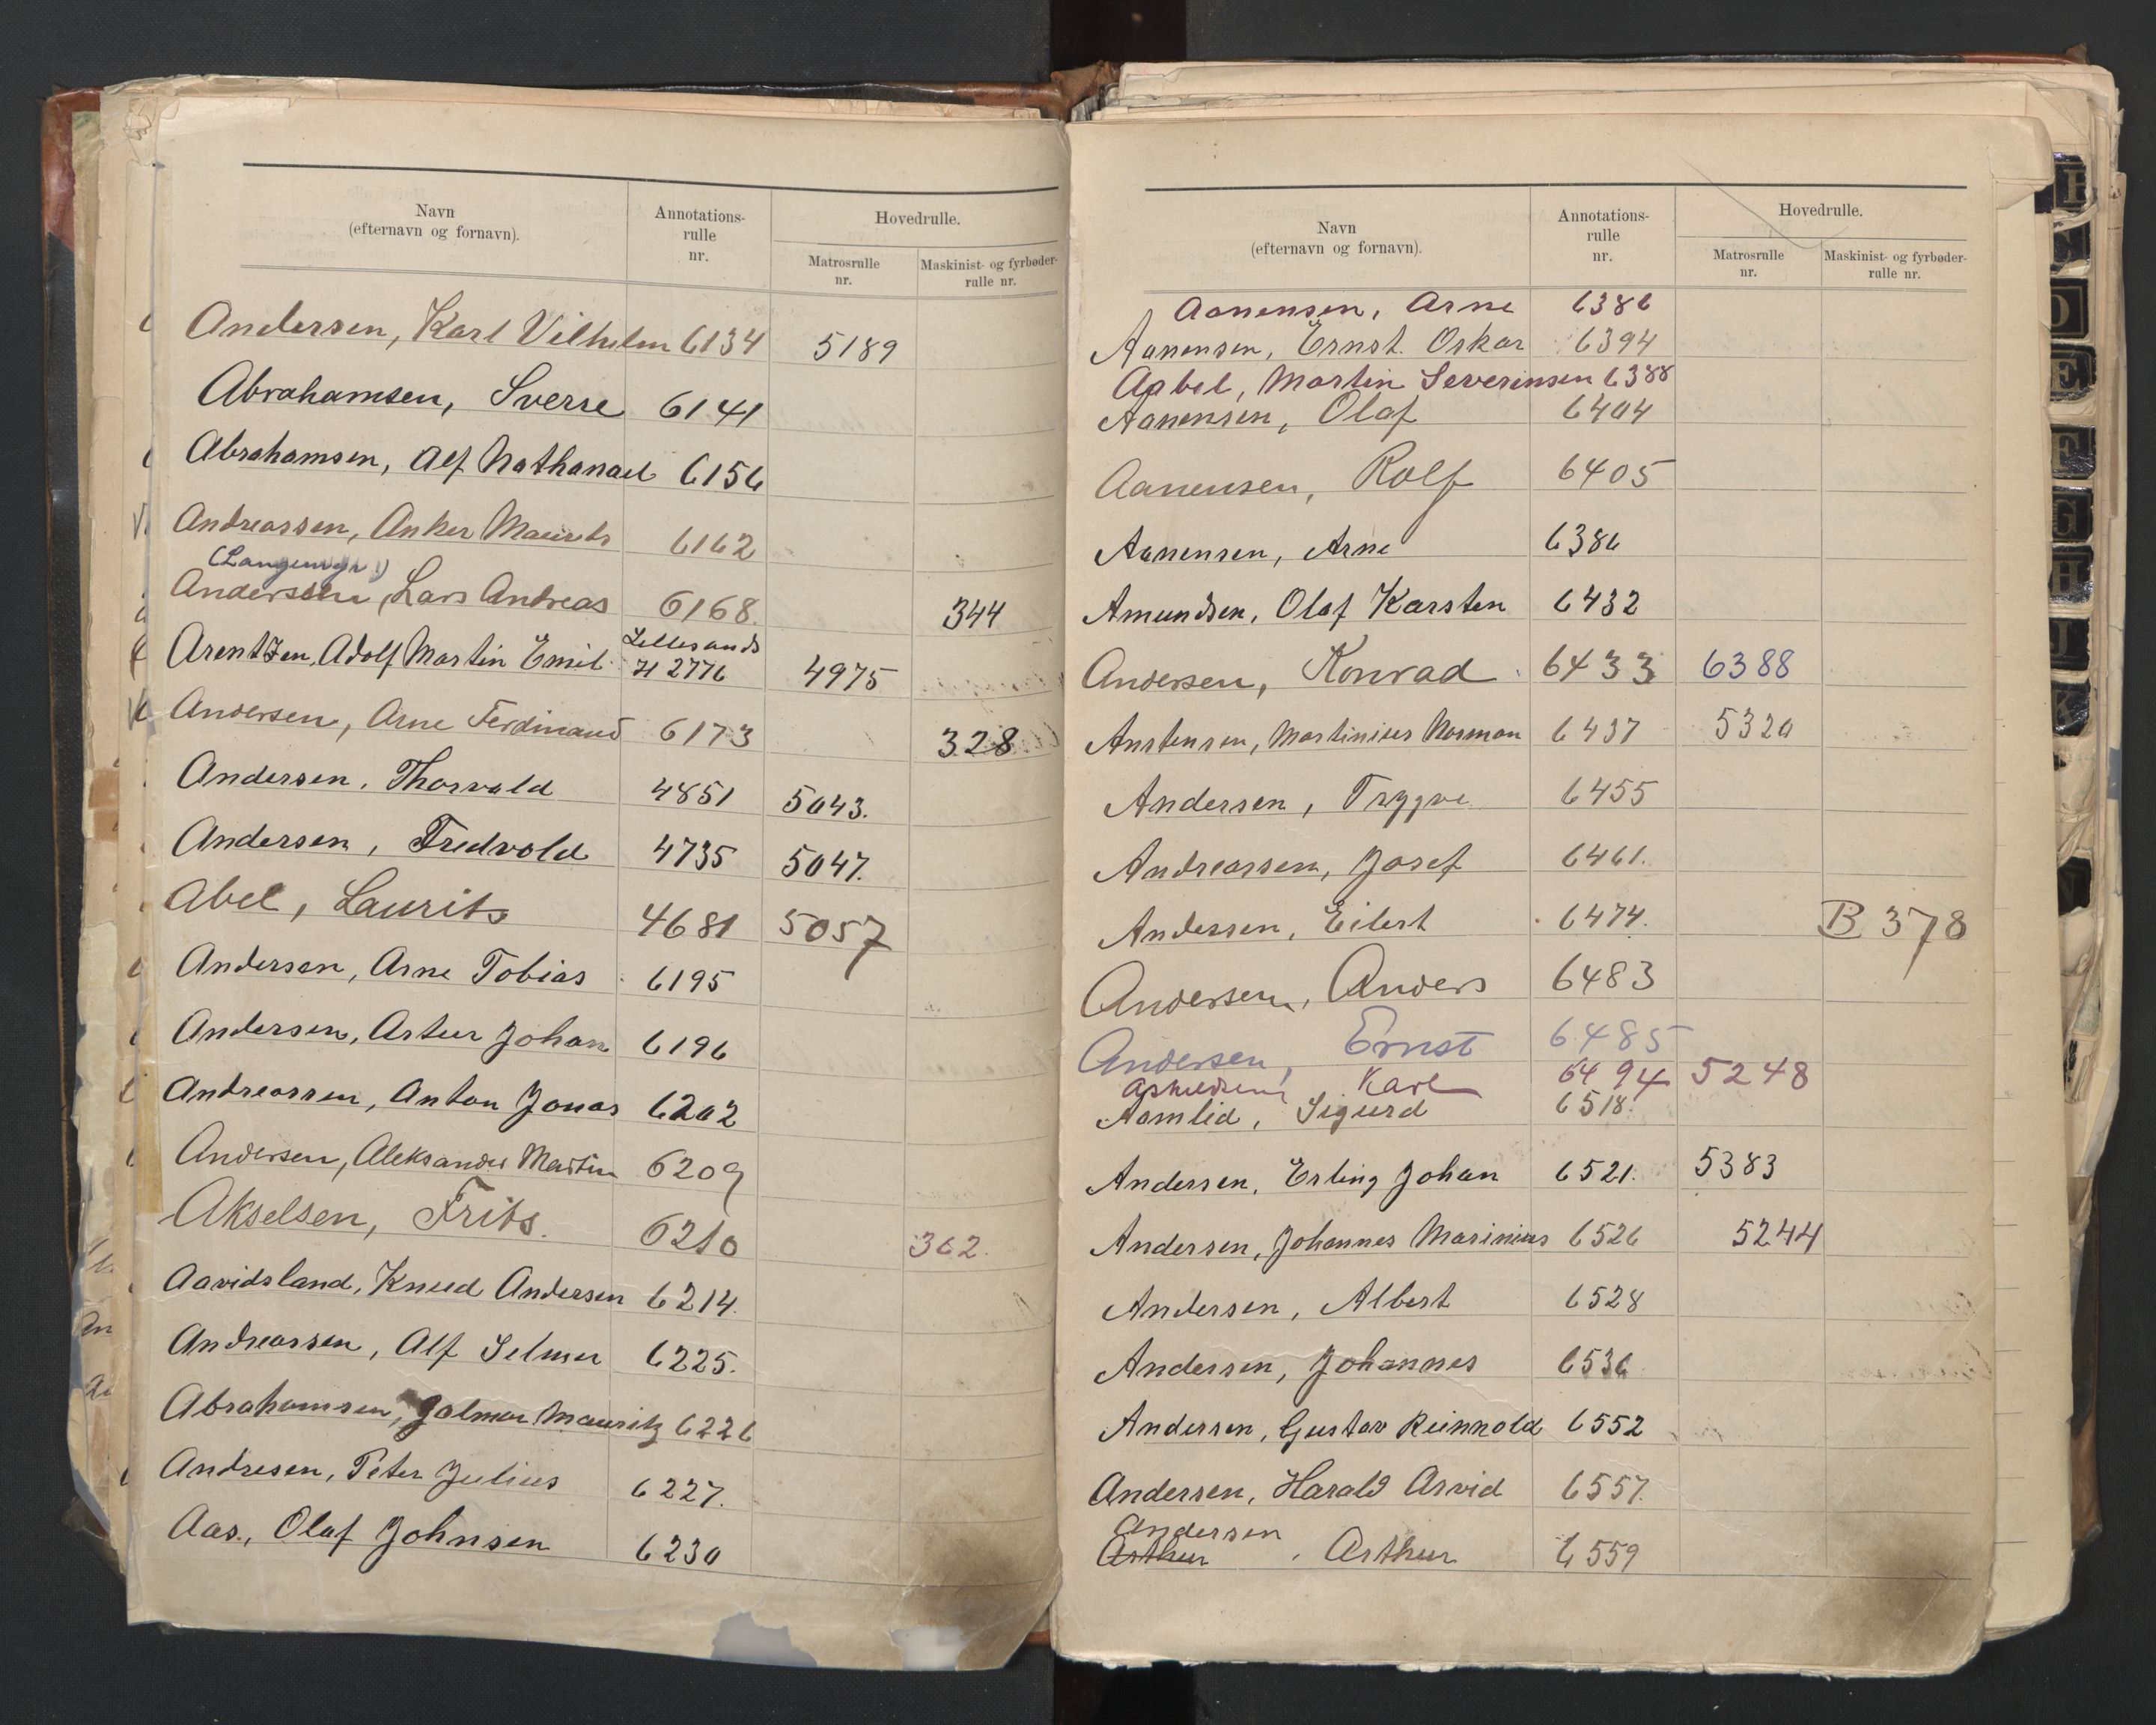 Navn
(efternavn og fornavn).
Annotations-
rulle
nr.
Hovedrulle.
Matrosrulle
nr.
Maskinist- og fyrbøder-
rulle nr.
Andersen, Karl Vilhelm 6134 5189
Abrahamsen, Sverre 6141
Abrahamsen, Alf Nathanael 6156
Andreassen, Anker Mauritz 6162
Andersen, Lars Andreas 6168. 344
Lillesands
Arentzen, Adolf Martin Emil H 2776 4975
Andersen, Arne Ferdinand 6173 328
Andersen, Thorvald 4851 5043.
Andersen, Fredvold 4735 5047.
Abel, Laurits 4681 5057
Andersen, Arne Tobias 6195
Andersen, Artur Johan 6196
Andreassen, Anton Jonas 6202
Andersen, Aleksander Martin 6209
Akselsen, Frits. 6210 362.
Aavidsland, Knud Andersen 6214.
Andreassen, Alf Selmer 6225.
Abrahamsen, Hjalmar Mauritz 6226
Andresen, Peter Julius 6227.
Aas., Olaf Johnsen 6230
Navn
(efternavn og fornavn).
Annotations-
rulle
nr.
Hovedrulle.
Matrosrulle
nr.
Maskinist- og fyrbøder-
rulle nr.
Aanensen, Arne 6386
Aanensen, Ernst Oskar 6394
Aabel, Martin Severinsen 6388
Aanensen, Olaf 6404
Aanensen, Rolf 6405
Aanensen, Arne 6386
Amundsen, Olaf Karsten 6432
Andersen, Konrad 6433 6388
Anstensen, Martinius Norman 6437 5320
Andersen, Trygve 6455
Andreassen, Josef 6461.
Andersen, Eilert 6474. B 378
Andersen, Anders 6483
Andersen, Ernst 6485
Karl 6494 5248
Aamlid, Sigurd 6518.
Andersen, Erling Johan 6521. 5383
Andersen, Johannes Marinius 6526 5244
Andersen, Albert 6528
Andersen, Johannes 6536
Andersen, Gustav Reinhold 6552
Andersen, Harald Arvid 6557.
Andersen
Arthur, Arthur 6559